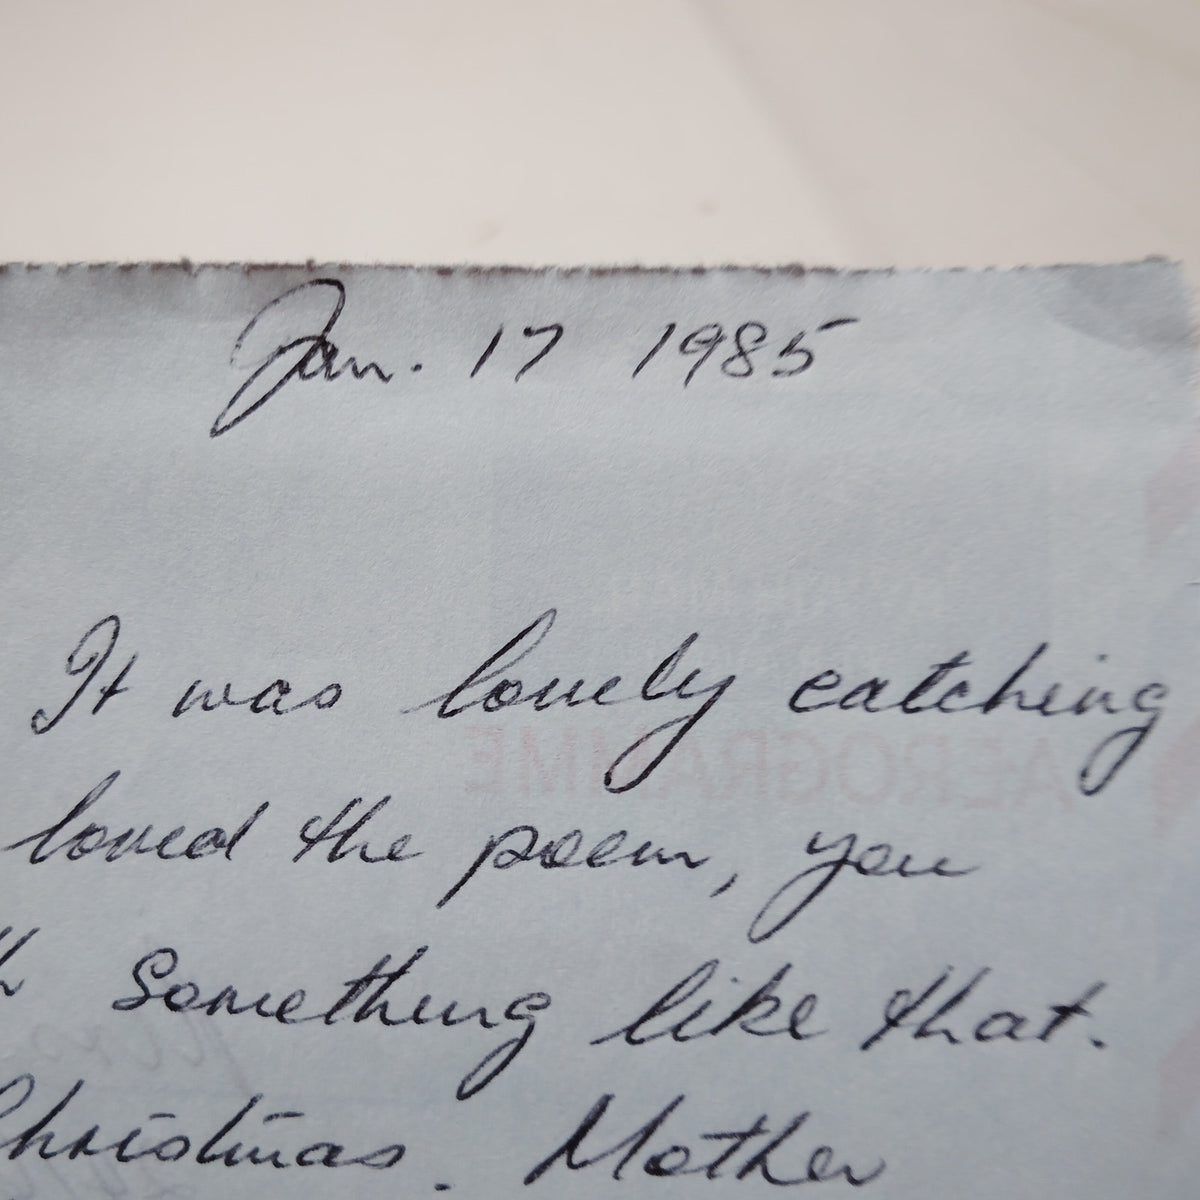 Jan. 17 1985
It was lovely catching
AEROGRAMME
loved the poem, you
something like that.
Christmas. Mother